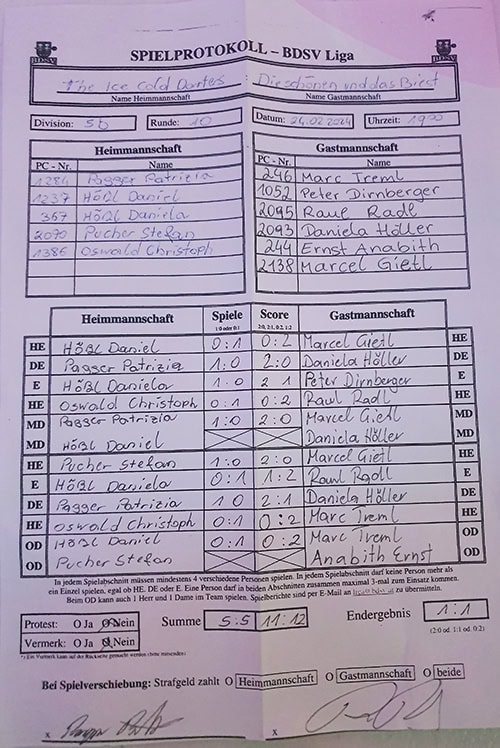 BDSV BDSV
SPIELPROTOKOLL – BDSV Liga
The Ice Cold Darters : Die schönen und das Biest
Name Heimmannschaft Name Gastmannschaft
Division: 5b Runde: 10 Datum: 24.02.2024 Uhrzeit: 19:00
Heimmannschaft
PC - Nr. Name
1284 Pagger Patrizia
1237 Hößl Daniel
367 Hößl Daniela
2070 Pucher Stefan
1386 Oswald Christoph
Gastmannschaft
PC - Nr. Name
246 Marc Treml
1052 Peter Dirnberger
2095 Raul Radl
2093 Daniela Höller
244 Ernst Anabith
2138 Marcel Gietl
Heimmannschaft Spiele Score Gastmannschaft
1:0 oder 0:1 2:0, 2:1, 0:2, 1:2
HE Hößl Daniel 0:1 0:2 Marcel Gietl HE
DE Pagger Patrizia 1:0 2:0 Daniela Höller DE
E Hößl Daniela 1:0 2 1 Peter Dirnberger E
HE Oswald Christoph 0:1 0:2 Raul Radl HE
MD Pagger Patrizia 1:0 2:0 Marcel Gietl MD
MD Hößl Daniel Daniela Höller MD
HE Pucher Stefan 1:0 2:0 Marcel Gietl HE
E Hößl Daniela 0:1 1:2 Raul Radl E
DE Pagger Patrizia 1 0 2:1 Daniela Höller DE
HE Oswald Christoph 0:1 0:2 Marc Treml HE
OD Hößl Daniel 0:1 0:2 Marc Treml OD
OD Pucher Stefan Anabith Ernst OD
In jedem Spielabschnitt müssen mindestens 4 verschiedene Personen spielen. In jedem Spielabschnitt darf keine Person mehr als
ein Einzel spielen, egal ob HE, DE oder E. Eine Person darf in beiden Abschnitten zusammen maximal 3-mal zum Einsatz kommen.
Beim OD kann auch 1 Herr und 1 Dame im Team spielen. Spielberichte sind per E-Mail an zu übermitteln.
Protest: O Ja O Nein Summe 5:5 11:12 Endergebnis 1:1
Vermerk: O Ja O Nein (2:0 od. 1:1 od. 0:2)
*) Ein Vermerk kann auf der Rückseite gemacht werden (bitte mitsenden)
Bei Spielverschiebung: Strafgeld zahlt O Heimmannschaft O Gastmannschaft O beide
x x